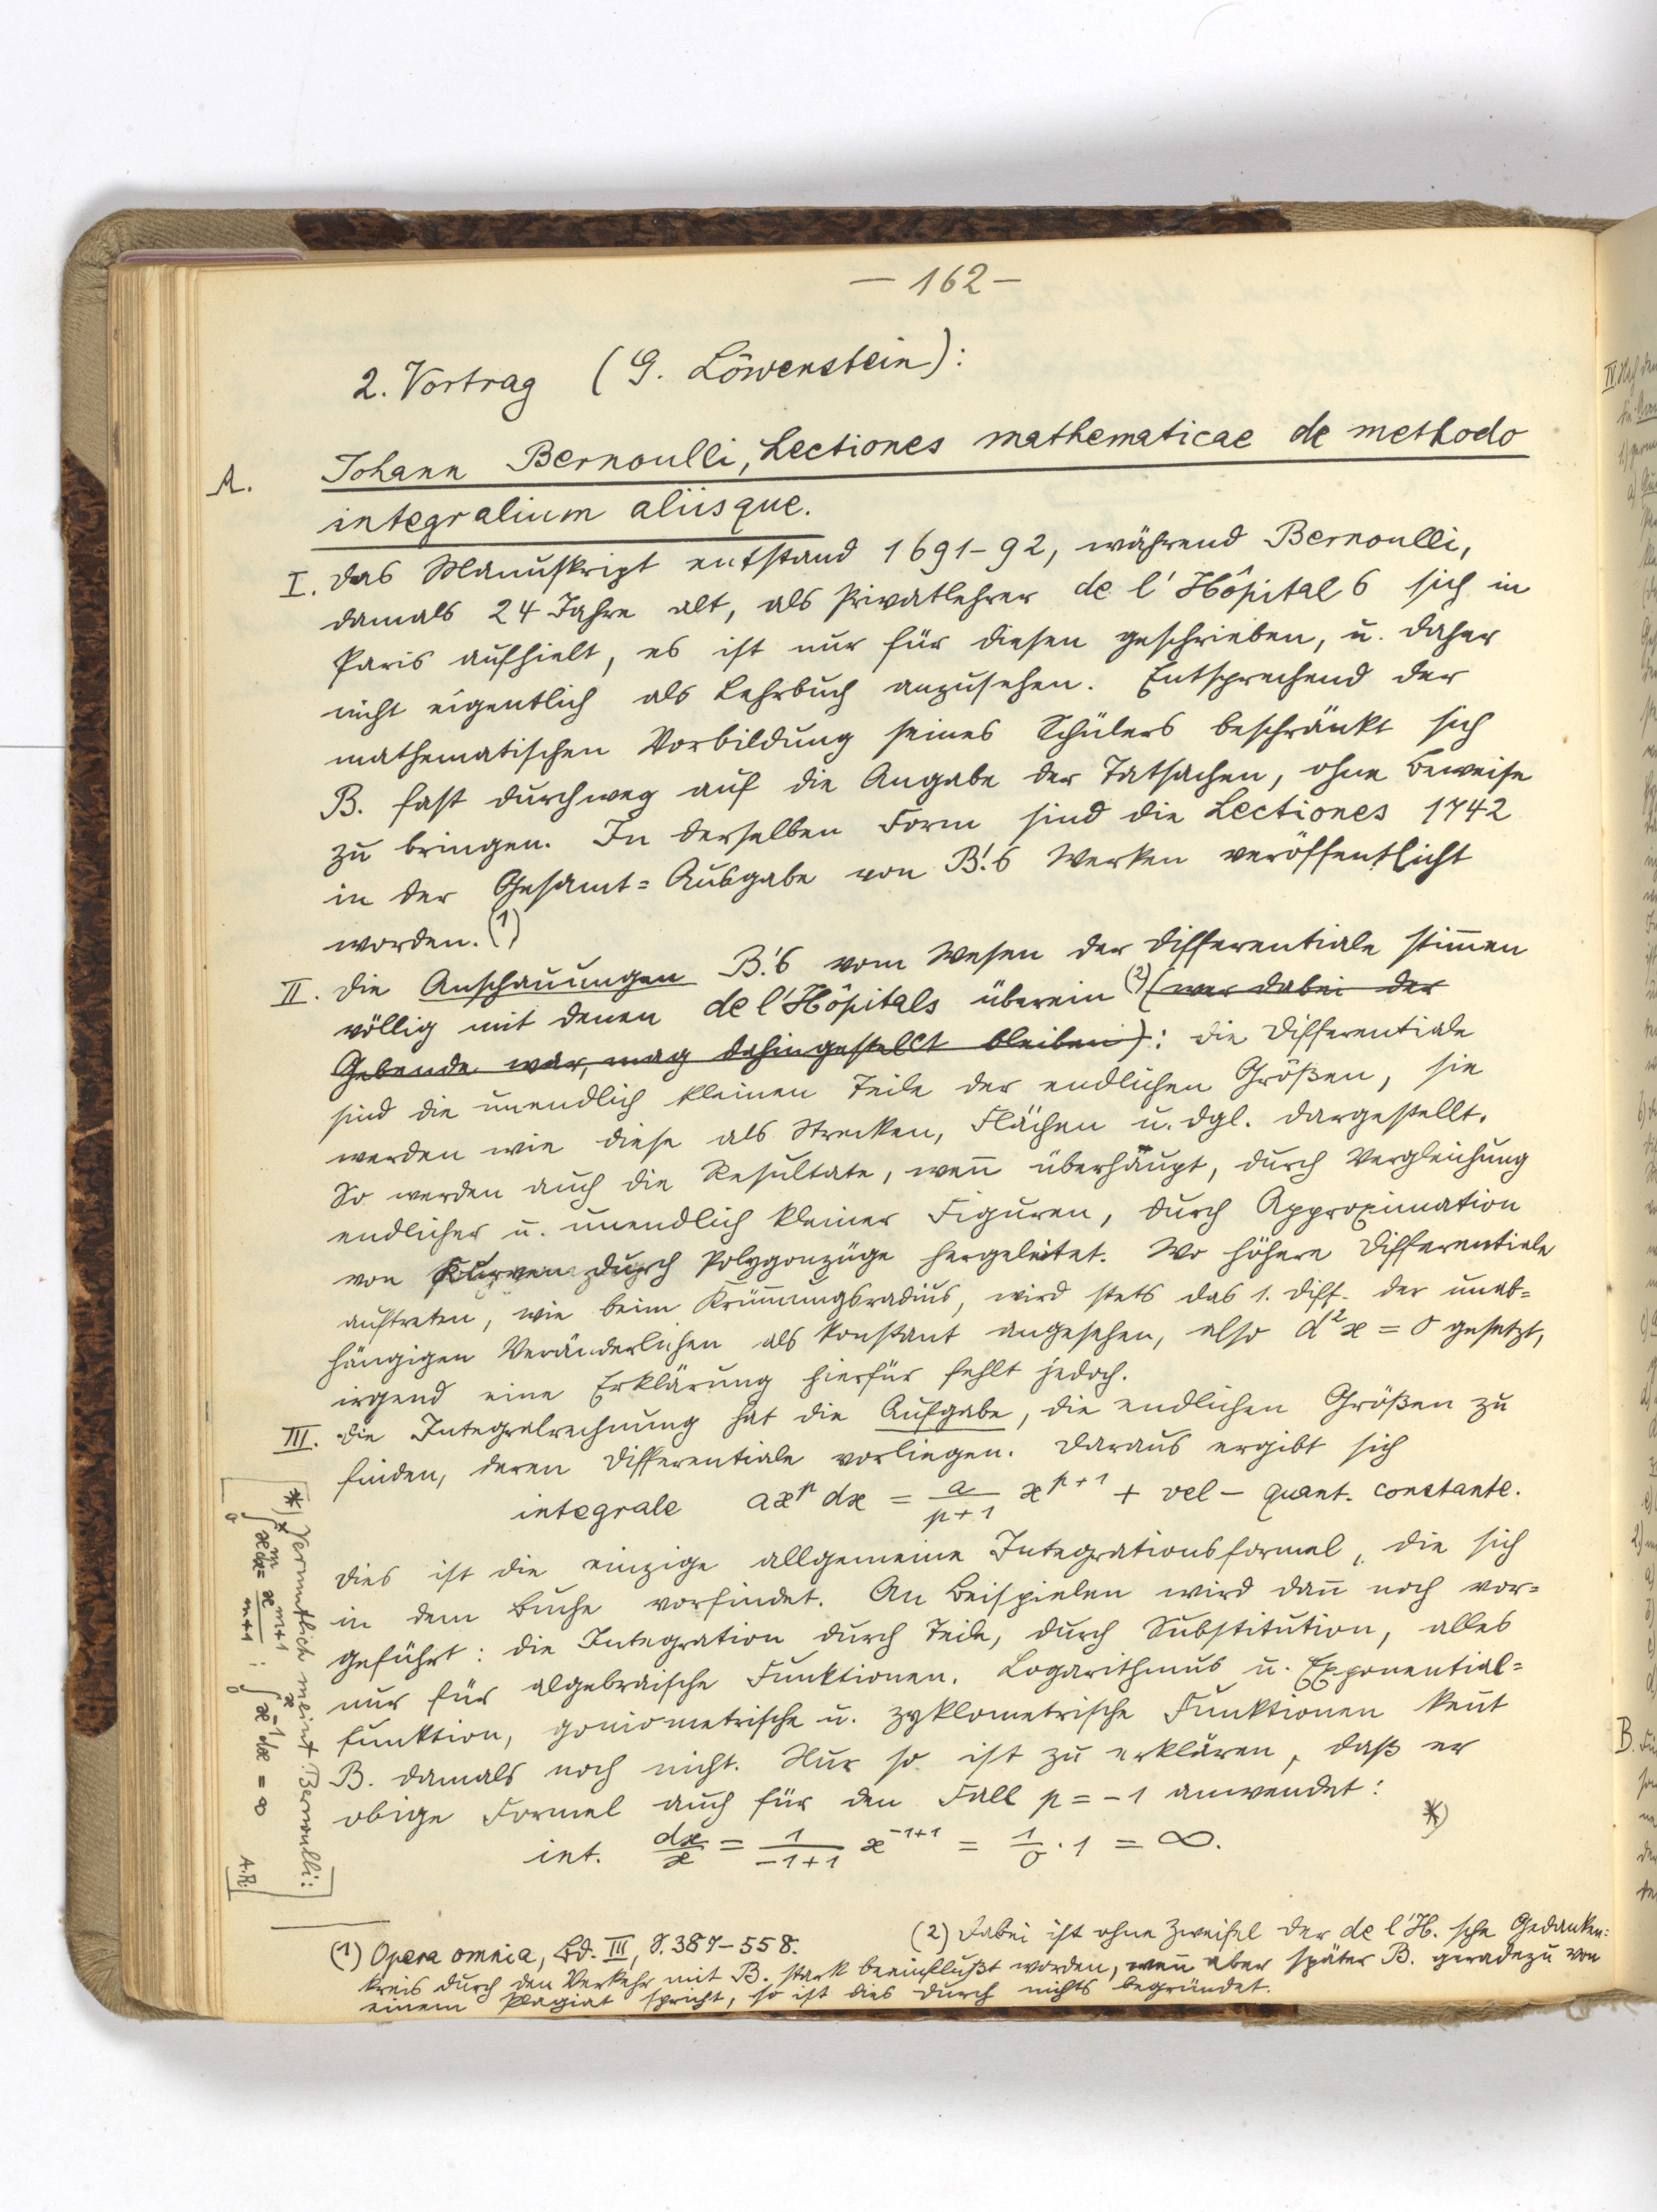 — 162 —
2. Vortrag (G. Löwenstein):
A. Johann Bernoulli, Lectiones mathematicae de methodo
integralium aliisque.
I. Das Manuskript entstand 1691–92, während Bernoulli,
damals 24 Jahre alt, als Privatlehrer de l'Hôpitals sich in
Paris aufhielt, es ist nur für diesen geschrieben, u. daher
nicht eigentlich als Lehrbuch anzusehen. Entsprechend der
mathematischen Vorbildung seines Schülers beschränkt sich
B. fast durchweg auf die Angabe der Tatsachen, ohne Beweise
zu bringen. In derselben Form sind die Lectiones 1742
in der Gesamt=Ausgabe von B.'s Werken veröffentlicht
worden. (1)
II. Die Anschauungen B.'s vom Wesen der Differentiale stimmen
völlig mit denen de l'Hôpitals überein (2) (wer dabei der
Gebende war, mag dahingestellt bleiben): die Differentiale
sind die unendlich kleinen Teile der endlichen Größen, sie
werden wie diese als Strecken, Flächen u. dgl. dargestellt.
So werden auch die Resultate, wenn überhaupt, durch Vergleichung
endlicher u. unendlich kleiner Figuren, durch Approximation
von Kurven durch Polygonzüge hergeleitet. Wo höhere Differentiale
auftreten, wie beim Krümmungsradius, wird stets das 1. Diff. der unab=
hängigen Veränderlichen als konstant angesehen, also d²x = 0 gesetzt,
irgend eine Erklärung hierfür fehlt jedoch.
III. Die Integralrechnung hat die Aufgabe, die endlichen Größen zu
finden, deren Differentiale vorliegen. Daraus ergibt sich
integrale ax^p dx = a/(p+1) x^(p+1) + vel – quant. constante.
Dies ist die einzige allgemeine Integrationsformel, die sich
in dem Buche vorfindet. An Beispielen wird dann noch vor=
geführt: die Integration durch Teile, durch Substitution, alles
nur für algebraische Funktionen. Logarithmus u. Exponential=
funktion, goniometrische u. zyklometrische Funktionen kennt
B. damals noch nicht. Nur so ist zu erklären, daß er
obige Formel auch für den Fall p = –1 anwendet:
int. dx/x = 1/(–1+1) x^(–1+1) = 1/0 · 1 = ∞. *)
(1) Opera omnia, Bd. III, S. 387–558.
(2) Dabei ist ohne Zweifel der de l'H.sche Gedanken=
kreis durch den Verkehr mit B. stark beeinflußt worden, wenn aber später B. geradezu von
einem Plagiat spricht, so ist dies durch nichts begründet.
[*) Vermutlich meint Bernoulli:
∫₀ˣ x^m dx = x^(m+1)/(m+1) ; ∫₀ˣ x^(-1) dx = ∞
A.R.]